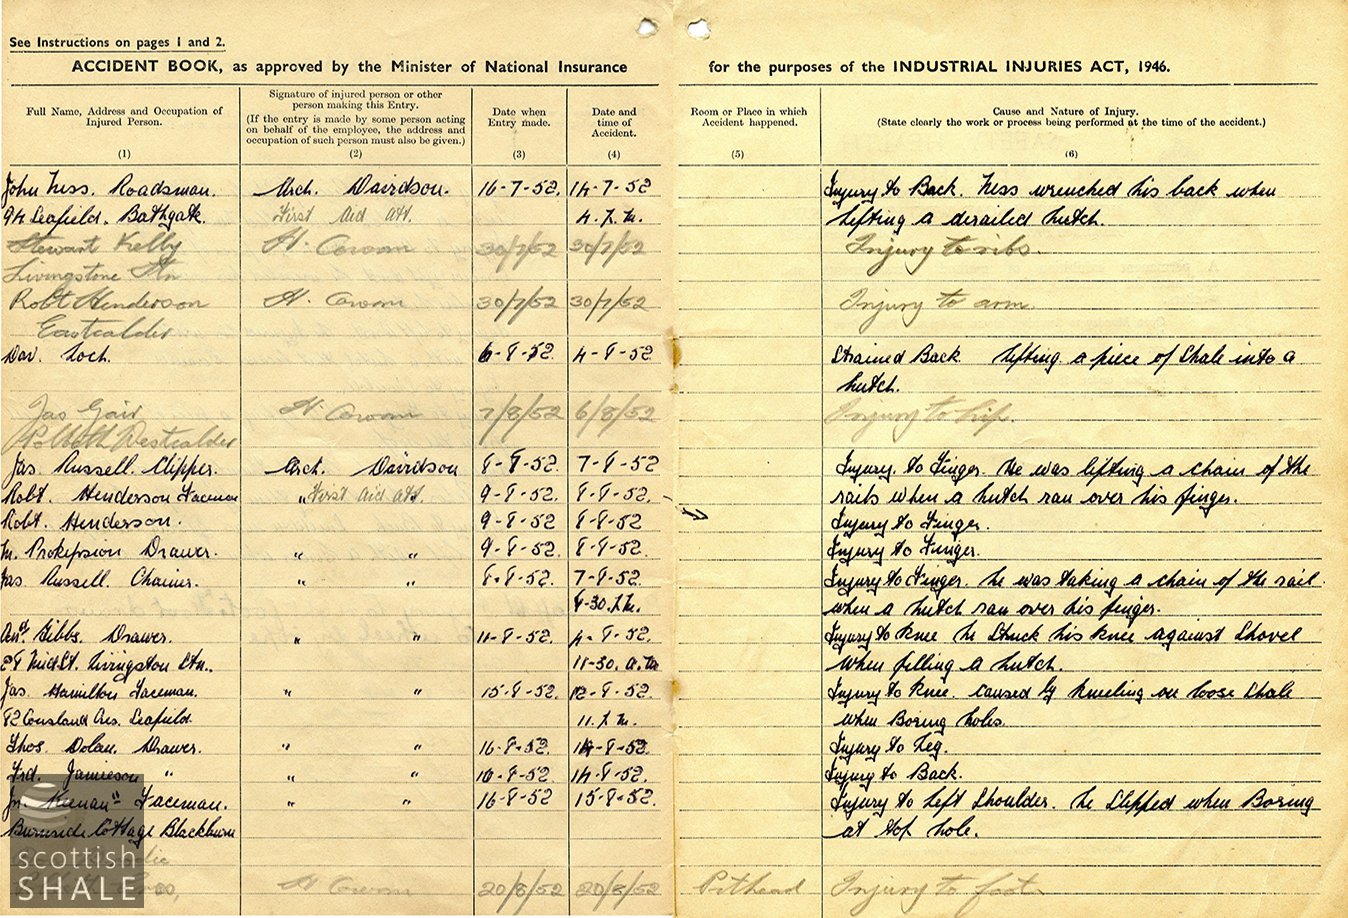 See Instructions on pages 1 and 2.
ACCIDENT BOOK, as approved by the Minister of National Insurance for the purposes of the INDUSTRIAL INJURIES ACT, 1946.
Full Name, Address and Occupation of
Injured Person.
(1)
Signature of injured person or other
person making this Entry.
(If the entry is made by some person acting
on behalf of the employee, the address and
occupation of such person must also be given.)
(2)
Date when
Entry made.
(3)
Date and
time of
Accident.
(4)
Room or Place in which
Accident happened.
(5)
Cause and Nature of Injury.
(State clearly the work or process being performed at the time of the accident.)
(6)
John Ness. Roadsman. Arch. Davidson. 16-7-52. 14-7-52 Injury to Back. Ness wrenched his back when
94 Leafield. Bathgate. First Aid att. 4. P.M. lifting a derailed hutch.
Stewart Kelby H. Cowan 30/7/52 30/7/52 Injury to ribs.
Livingstone Stn
Robt Henderson H. Cowan 30/7/52 30/7/52 Injury to arm.
Eastcalder
Dav. Loch. 6-8-52. 4-8-52. Strained Back lifting a piece of Shale into a
hutch.
Jas Gair H. Cowan 7/8/52 6/8/52 Injury to hip.
Polbeth Westcalder
Jas. Russell. Clipper. Arch. Davidson 8-8-52. 7-8-52 Injury. to Finger. He was lifting a chain of the
Robt. Henderson Faceman " First Aid att. 9-8-52. 8-8-52. rails when a hutch ran over his finger.
Robt. Henderson. 9-8-52 8-8-52 Injury to Finger.
Drawer. " " 9-8-52. 8-8-52. Injury to Finger.
Jas. Russell. Chainer. " " 8-8-52. 7-8-52. Injury to Finger. he was taking a chain of the rail
-30. P.M. when a hutch ran over his finger.
Gibbs. Drawer. " " 11-8-52. -8-52. Injury to knee he Struck his knee against Shovel
Mid St. Livingston Stn.. 11-30. a.m when filling a hutch.
Jas. Hamilton Faceman. " " 15-8-52. 12-8-52. Injury to Knee. caused by kneeling on loose Shale
82 Cousland Cres. Seafield. 11. P.M. when Boring holes.
Thos. Dolan. Drawer. " " 16-8-52. 14-8-52. Injury to Leg.
Frd. Jamieson " " " 16-8-52. 14-8-52. Injury to Back.
Jn. Keenan " Faceman. " " 16-8-52 15-8-52. Injury to left Shoulder. he Slipped when Boring
Burnside Cottage Blackburn at top hole.
H Cowan 20/8/52 20/8/52 Pithead Injury to foot
scottish
SHALE